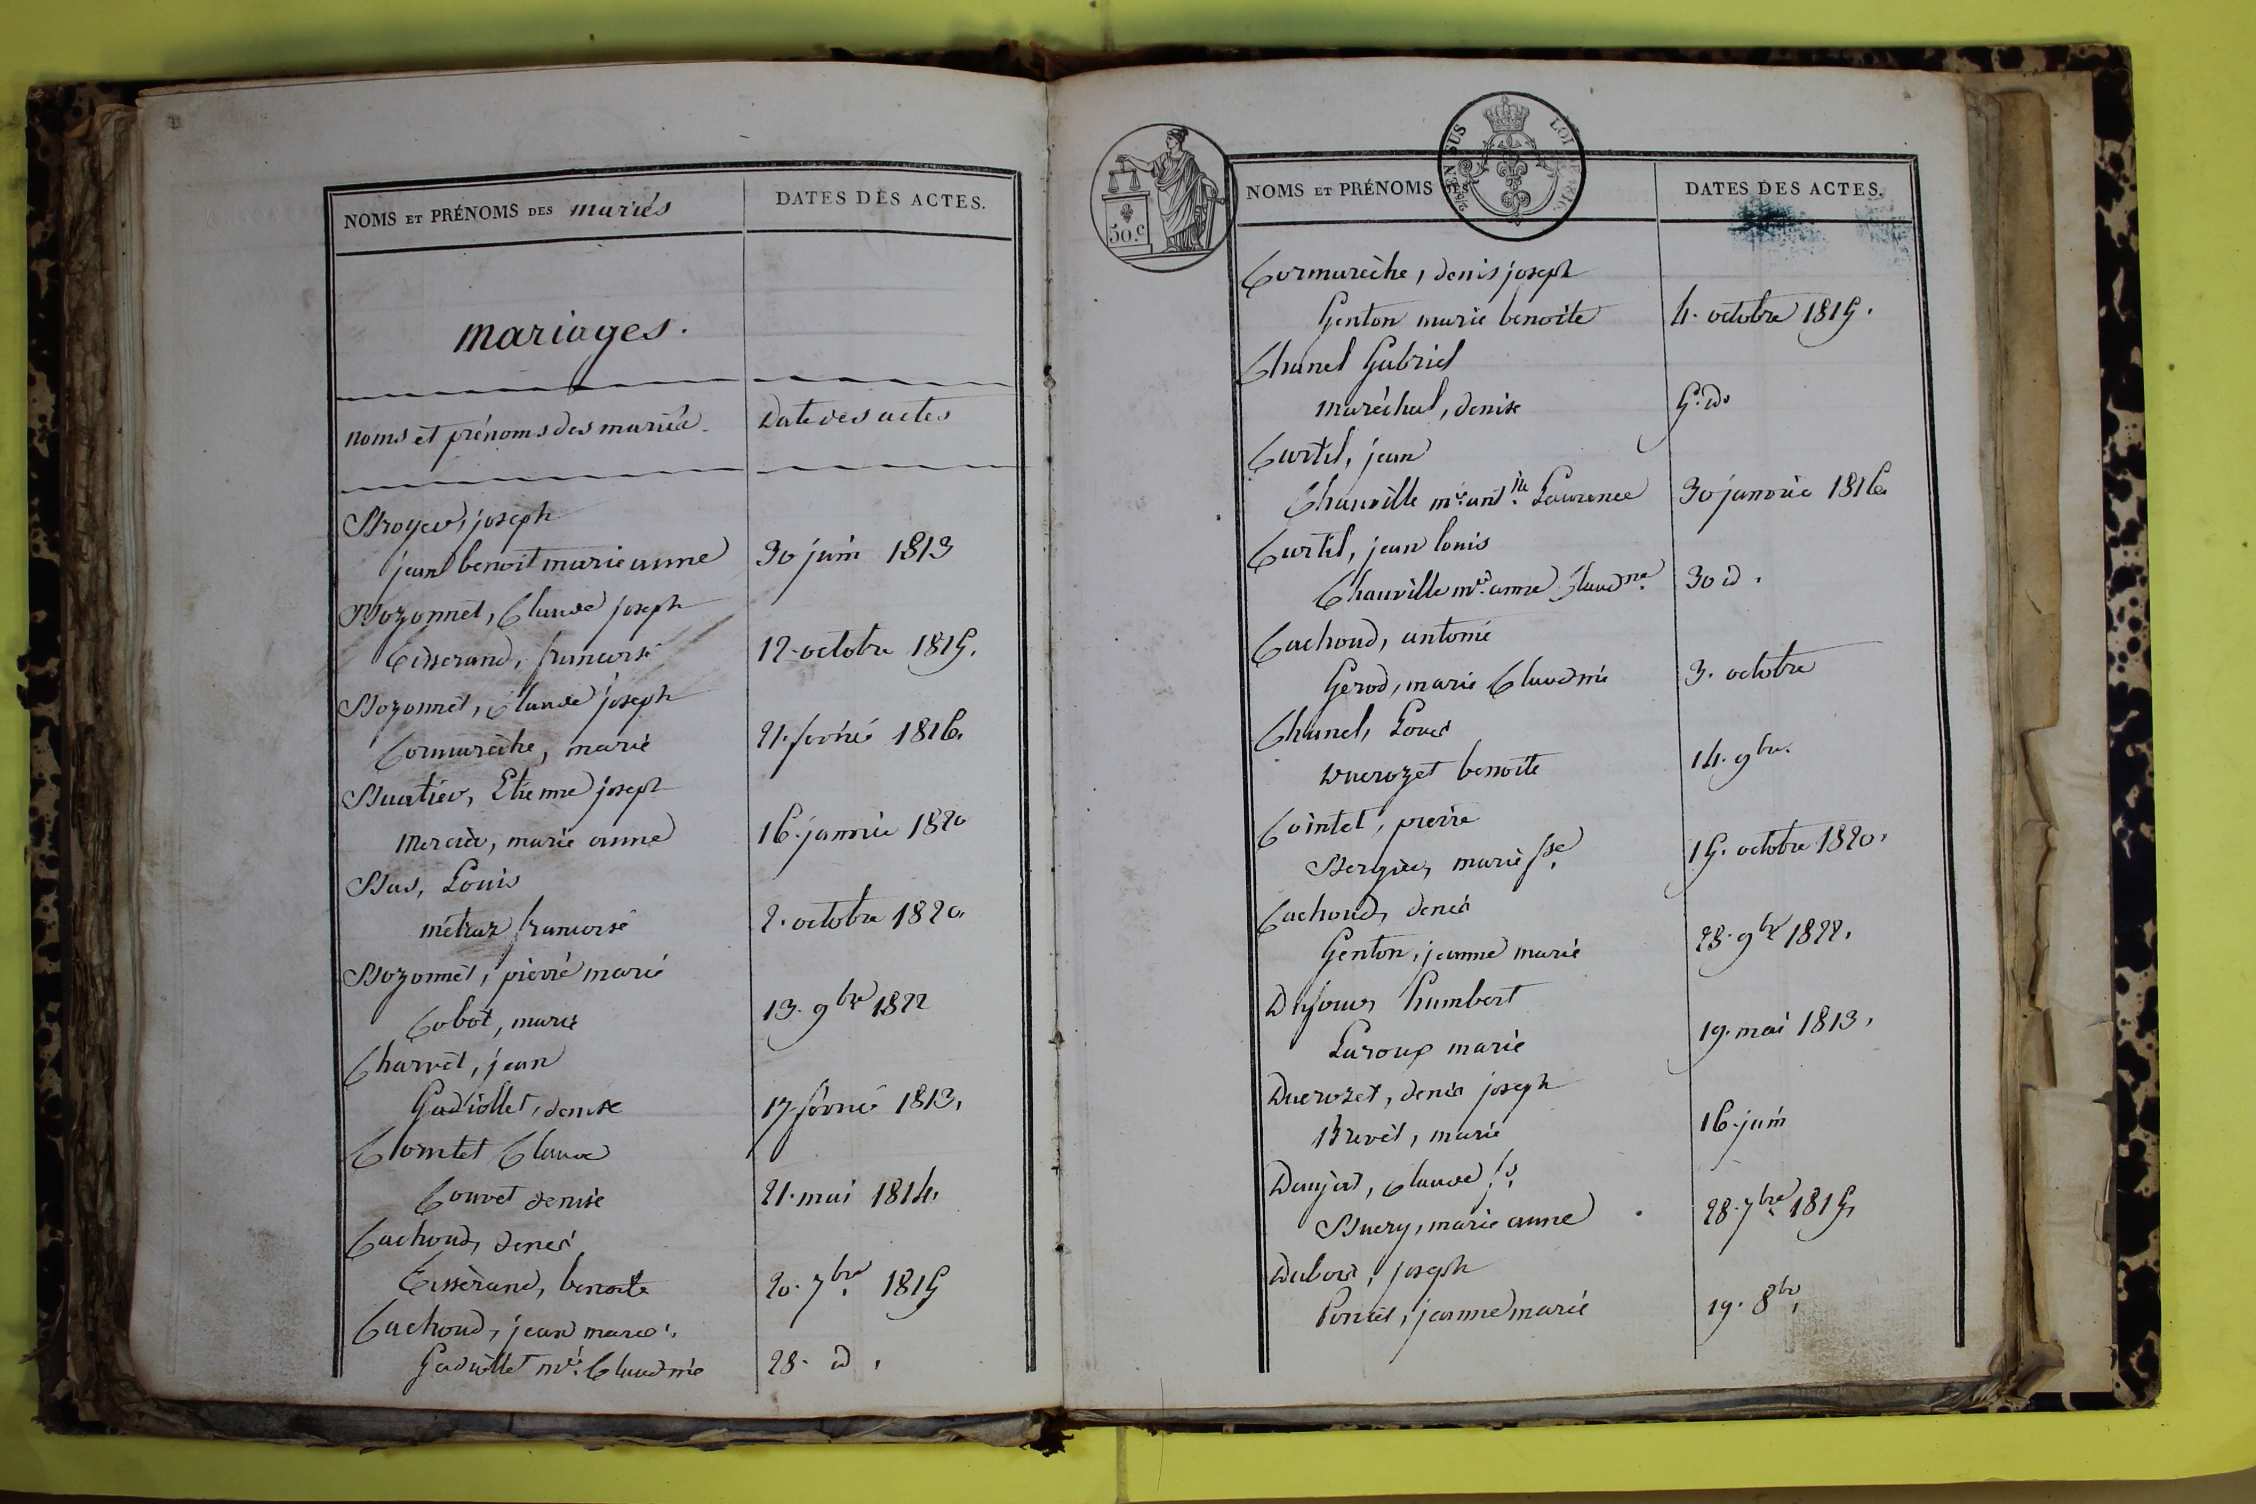 NOMS ET PRÉNOMS DES mariés
DATES DES ACTES.
mariages.
noms et prénoms des mariés
Date des actes
Broyer, joseph
jean benoit marie anne 30 juin 1813
Bozonnet, Claude joseph
Tisserand, francoise 12. octobre 1815.
Bozonnet, Claude joseph
Cormarèche, marie 21. fevrie 1816.
Buatier, Etienne joseph
Mercier, marie anne 16. janvie 1820
Bas, Louis
métraz francoise 2. octobre 1820.
Bozonnet, pierre marie
Cobot, marie 13. 9bre 1822
Charvet, jean
Gadiollet, denise 17. févrie 1813.
Cointet Claude
Convet denise 21. mai 1814.
Cachoud, denis
Tisserand, benoite 20. 7bre 1815
Cachoud, jean marie.
Gadiollet mie. Claudine 28. id.
50.c
EN SUS
NOMS ET PRÉNOMS DES
DATES DES ACTES.
Cormarèche, denis joseph
Genton marie benoite 4. octobre 1815.
Chanel Gabriel
maréchal, denise 5. id.
Curtil, jean
Chanville me. antne. Laurence 30 janvie 1816
Curtil, jean louis
Chanville me. anne Claudne. 30 id.
Cachoud, antoine
Gerod, marie Claudine 3. octobre
Chanel, Louis
Ducrozet benoite 14. 9bre.
Cointet, pierre
Bergier, marie fse. 15. octobre 1820.
Cachoud, denis
Genton, jeanne marie 28. 9bre 1822.
Dufour, humbert
Laroux marie 19. mai 1813.
Ducrozet, denis joseph
Brevet, marie 16. juin
Danjat, Claude fs.
Buery, marie anne 28. 7bre. 1815.
Dubois, joseph
Poncet, jeanne marie 19. 8bre.